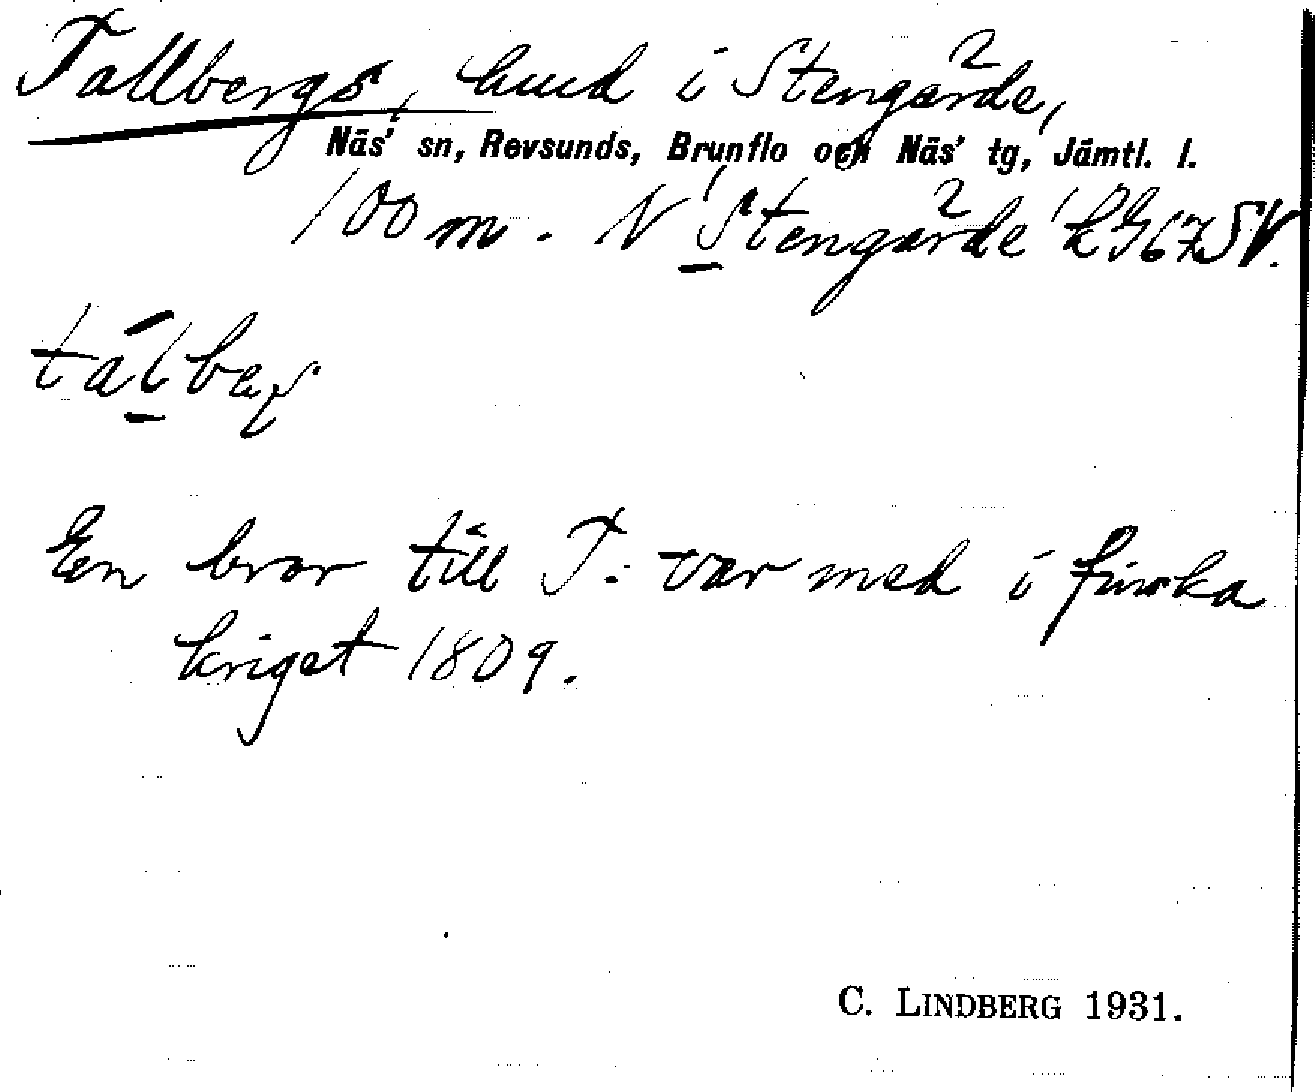 Tallbergs, hmd i Stengårde,
Näs' sn, Revsunds, Brunflo och Näs' tg, Jämtl. l.
100 m. N 'Stengårde' LG67SV.
tálbæṣ
En bror till T. var med i finska
kriget 1809.
C. LINDBERG 1931.